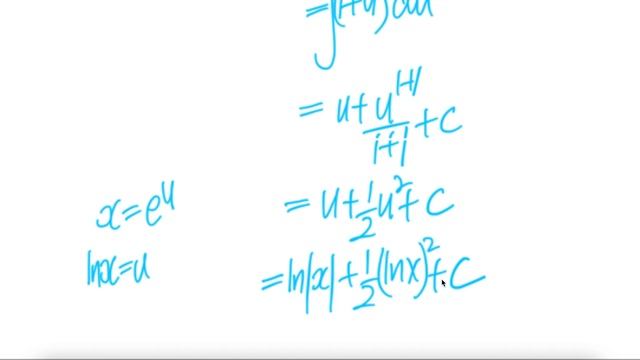 =∫(1+u)du
=u+u^{1+1}/1+1+C
x=e^u =u+1/2u^2+C
lnx=u =ln|x|+1/2(lnx)^2+C